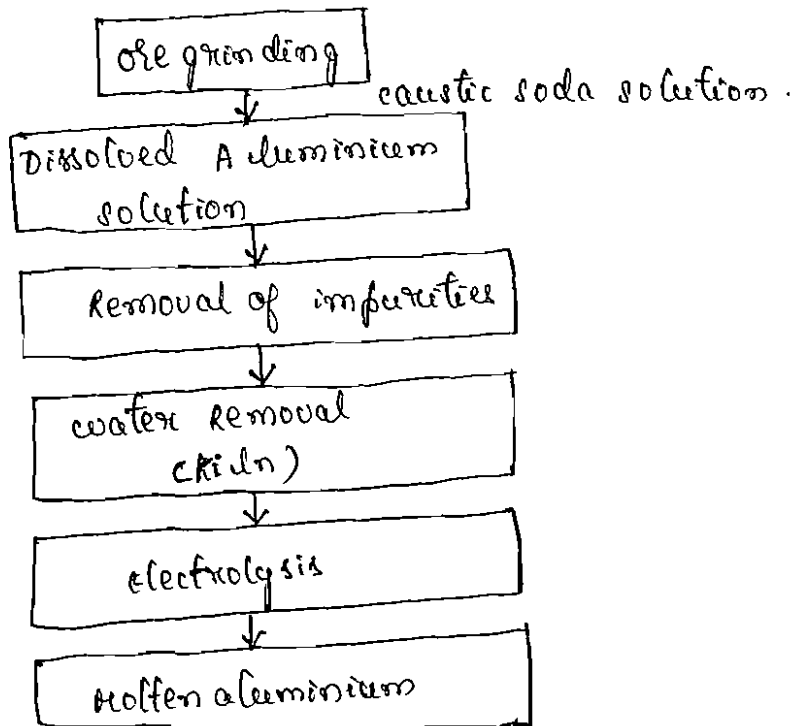 ore grinding
caustic soda solution.
Dissolved Aluminium
solution
Removal of impurities
water Removal
(kiln)
electrolysis
Molten aluminium